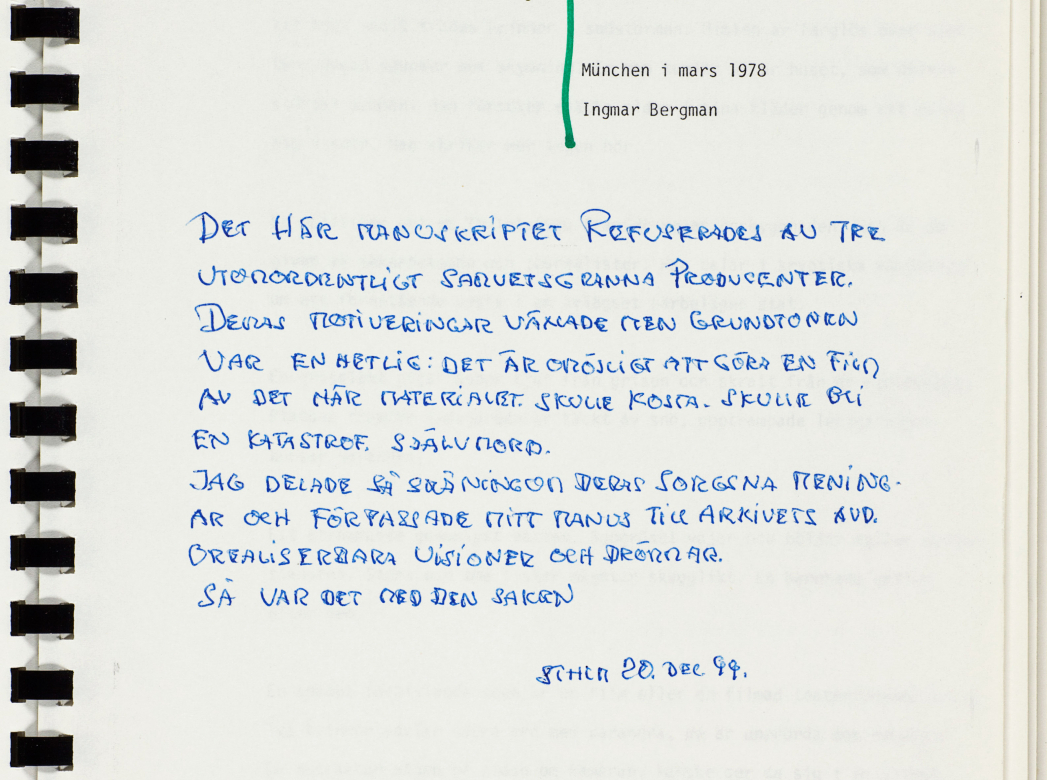 München i mars 1978
Ingmar Bergman
DET HÄR MANUSKRIPTET REFUSERADES AV TRE
UTOMORDENTLIGT SAMVETSGRANNA PRODUCENTER.
DERAS MOTIVERINGAR VÄXLADE MEN GRUNDTONEN
VAR ENHETLIG: DET ÄR OMÖJLIGT ATT GÖRA EN FILM
AV DET HÄR MATERIALET. SKULLE KOSTA. SKULLE BLI
EN KATASTROF. SJÄLVMORD.
JAG DELADE SÅ SMÅNINGOM DERAS SORGSNA MENING-
AR OCH FÖRPASSADE MITT MANUS TILL ARKIVETS AVD.
OREALISERBARA VISIONER OCH DRÖMMAR.
SÅ VAR DET MED DEN SAKEN
STHLM 20. DEC 99.